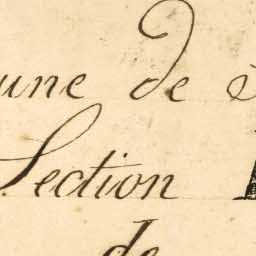 une de
Section
de